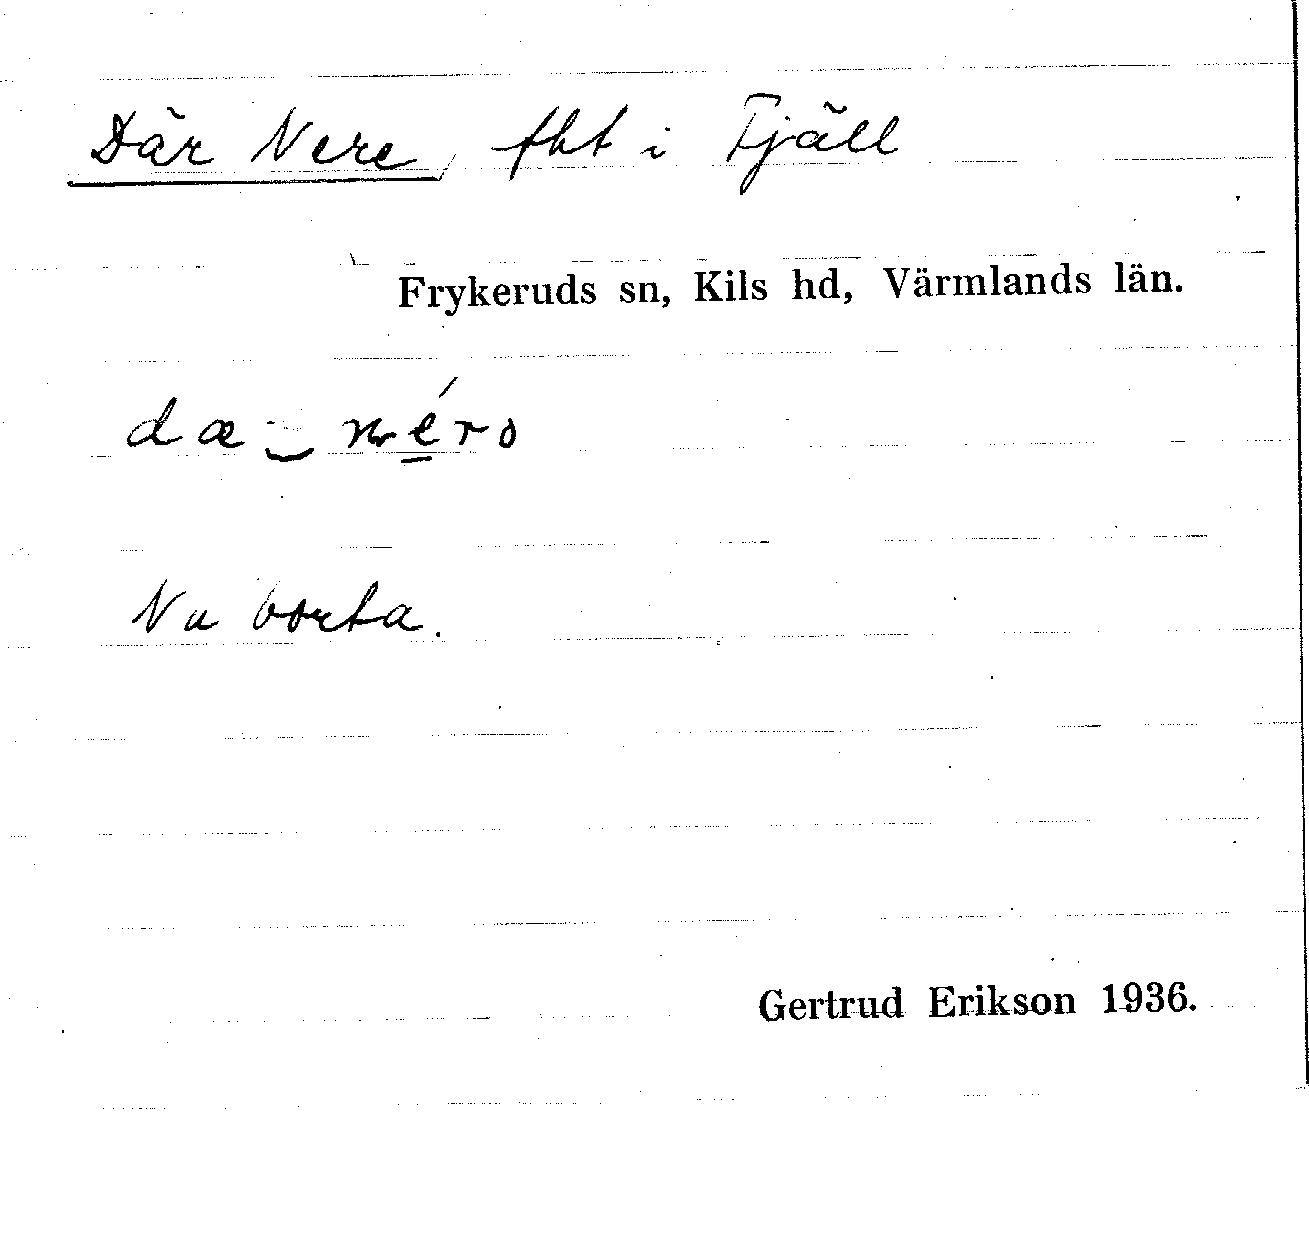 Där Nere, fht i Fjäll
Frykeruds sn, Kils hd, Värmlands län.
dæ‿néro
Nu borta.
Gertrud Erikson 1936.